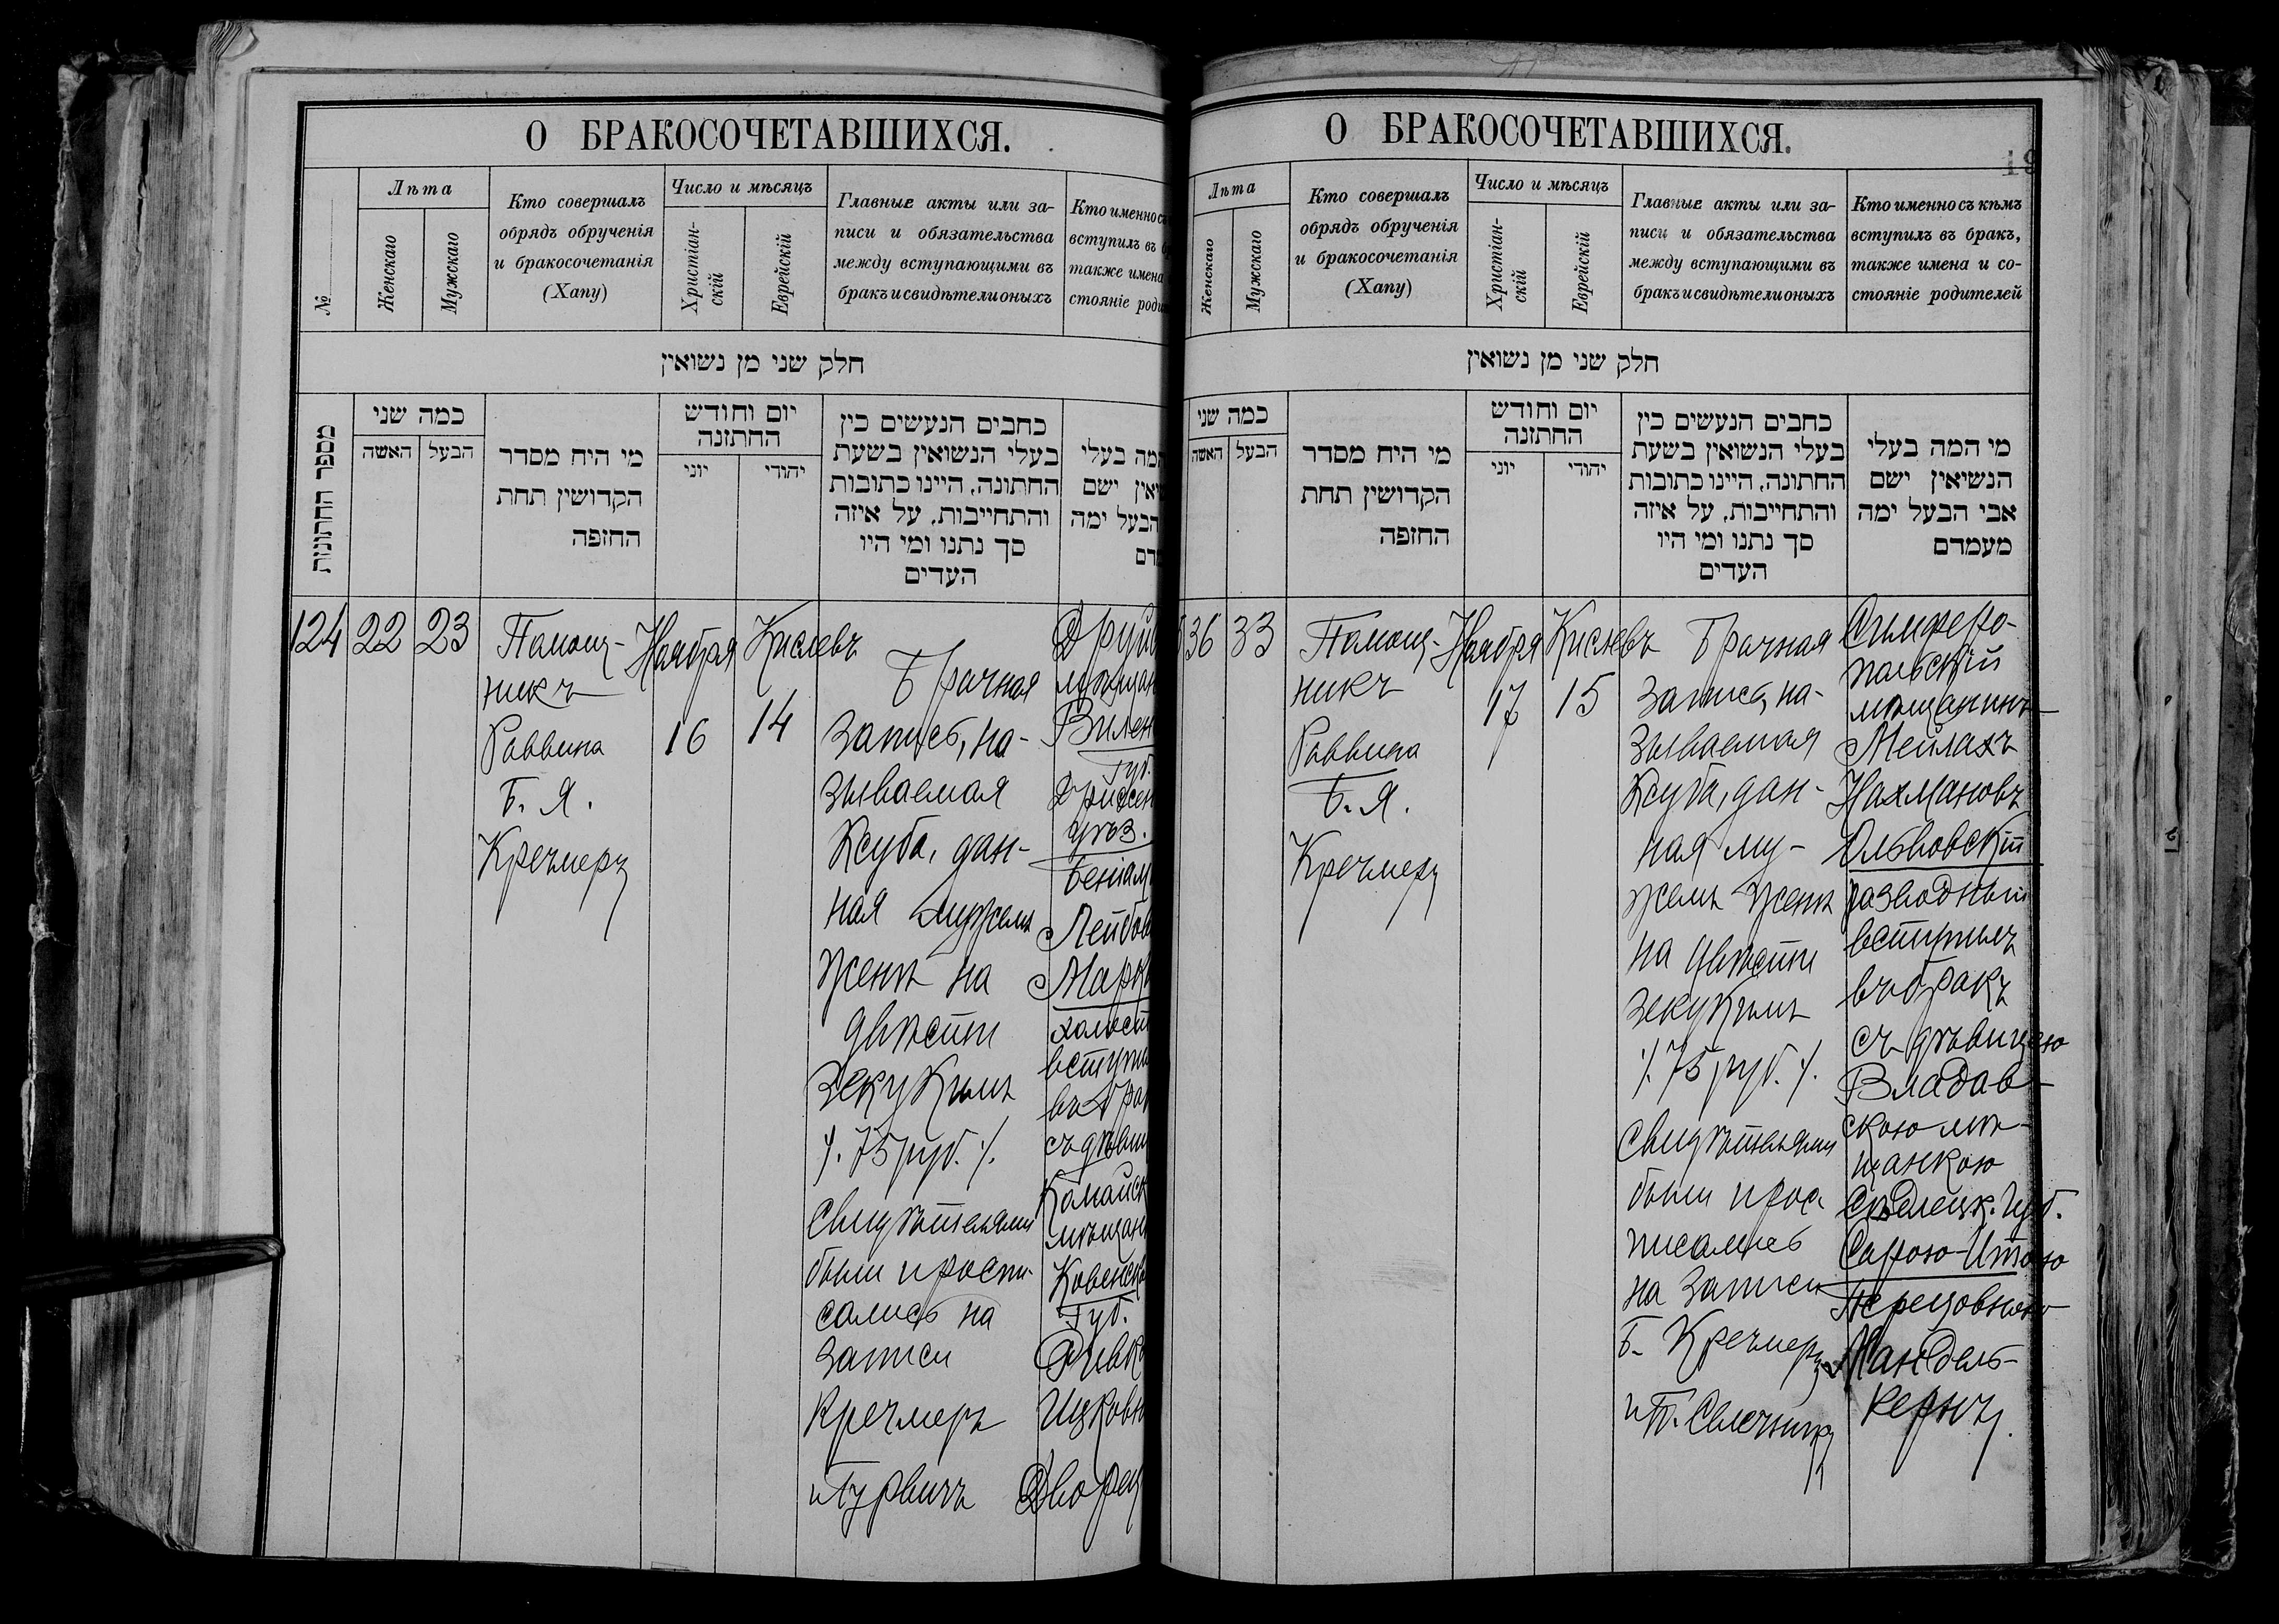 О БРАКОСОЧЕТАВШИХСЯ.
№
Лѣта
Женскаго
Мужскаго
Кто совершалъ
обрядъ обрученія
и бракосочетанія
(Хапу)
Число и мѣсяцъ
Христіан-
скій
Еврейскій
Главные акты или за-
писи и обязательства
между вступающими въ
бракъ и свидѣтели оныхъ
Кто именно съ
вступилъ въ
также имена
стояніе
חלק שני מן נשואין
מספר החתונות
כמה שני
האשה
הבעל
מי היח מסדר
הקדושין תחת
החזפה
יום וחודש
החתזנה
יוני
יהודי
כחבים הנעשים כין
בעלי הנשואין בשעת
החתונה, היינו כתובות
והתחייבות, על איזה
סך נתנו ומי היו
העדים
המה בעלי
ישם
הבעל ימה
124
22
23
Помощ-
никъ
Раввина
Б. Я.
Кречмеръ
Ноября
16
Кислевъ
14
Брачная
Запись, на-
зываемая
Ксуба, дан-
ная мужемъ
женѣ на
двѣсти
зекукимъ
./. 75 руб. ./.
Свидѣтелями
были и распи-
сались на
записи
Кречмеръ
и Гурвичъ
Вилен
Губ.
уѣз.
Бейбов
съ
Ковенск
Губ.
Ривк
Ицковн
Дворец
О БРАКОСОЧЕТАВШИХСЯ.
19
Лѣта
Женскаго
Мужскаго
Кто совершалъ
обрядъ обрученія
и бракосочетанія
(Хапу)
Число и мѣсяцъ
Христіан-
скій
Еврейскій
Главные акты или за-
писи и обязательства
между вступающими въ
бракъ и свидѣтели оныхъ
Кто именно съ кѣмъ
вступилъ въ бракъ,
также имена и со-
стояніе родителей
חלק שני מן נשואין
כמה שני
האשה
הבעל
מי היח מסדר
הקדושין תחת
החזפה
יום וחודש
החתזנה
יוני
יהודי
כחבים הנעשים כין
בעלי הנשואין בשעת
החתונה, היינו כתובות
והתחייבות, על איזה
סך נתנו ומי היו
העדים
מי המה בעלי
הנשיאין ישם
אבי הבעל ימה
מעמדם
36
33
Помощ-
никъ
Раввина
Б. Я.
Кречмеръ
Ноября
17
Кислевъ
15
Брачная
Запись, на-
зываемая
Ксуба, дан-
ная му-
жемъ женѣ
на двѣсти
зекукимъ
./. 75 руб. ./.
Свидѣтелями
были и рас-
писались
на записи
Б. Кречмеръ
Симферо-
польскій
мѣщанинъ
Мейлахъ
Нахмановъ
Ольховскій
разводный
вступилъ
въ бракъ
съ дѣвицею
Владав-
скою мѣ-
щанкою
Сѣдлецк. Губ.
Сорою-Итою
Перецовною
Мандель-
кернъ.